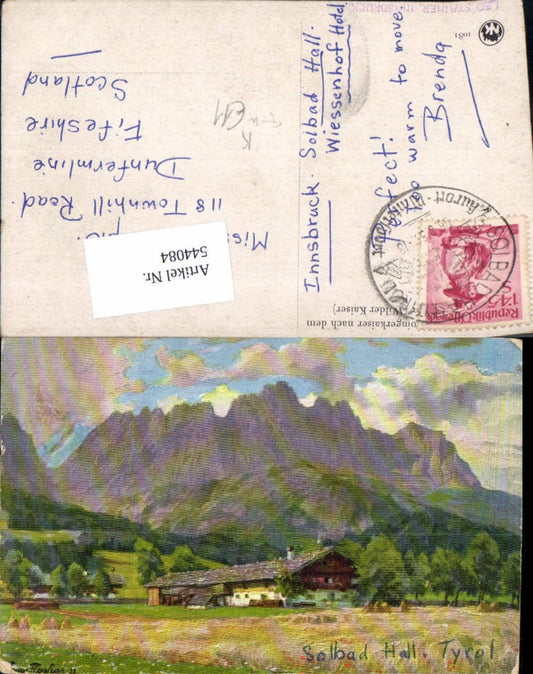 LEO STAINER, INNSBRUCK
1081
Innsbruck. Solbad Hall.
Wiessenhof Hotel
Perfect!
Too warm to move.
Brenda
118 Townhill Road.
Dunfermline
Fifeshire
Scotland
Artikel Nr.
544084
SOLBAD
Republik Österreich
1'45
S
nach dem
Wilder Kaiser)
Solbad Hall. Tyrol